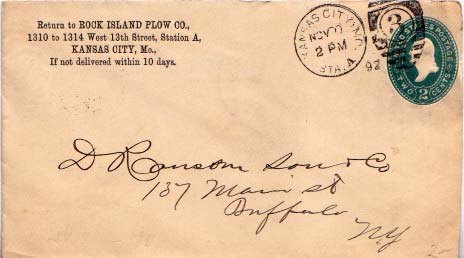 Return to ROCK ISLAND PLOW CO.,
1310 to 1314 West 13th Street, Station A,
KANSAS CITY, Mo.,
If not delivered within 10 days.
KANSAS CITY, MO.
NOV
2 PM
97
STA. A.
2
POSTAGE
TWO 2 CENTS
D. Ransom Son & Co
137 Main st
Buffalo
N.Y.
2-